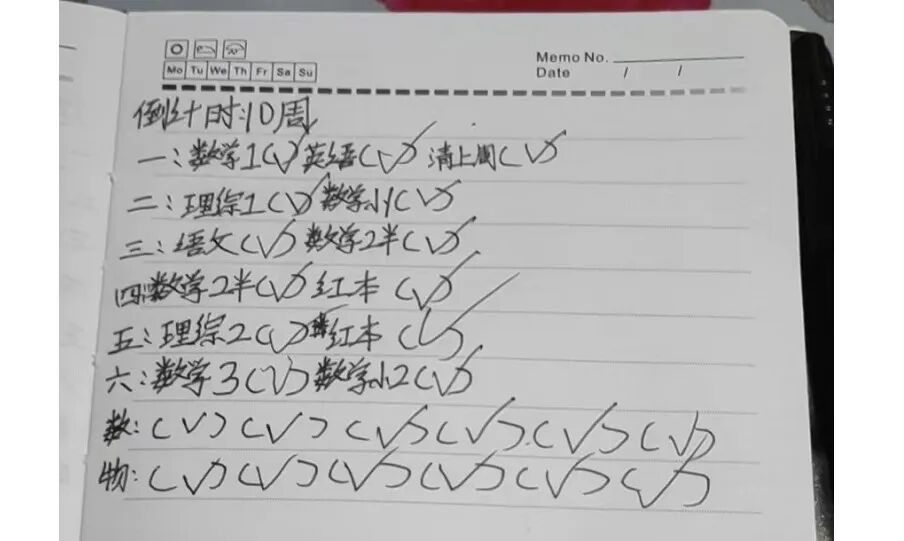 Memo No.
Mo Tu We Th Fr Sa Su
Date / /
倒计时:10周
一:数学1(√) 英语(√) 清上周(√)
二:理综1(√) 数学小1(√)
三:语文(√) 数学2半(√)
四:数学2半(√) 红本(√)
五:理综2(√) 红本(√)
六:数学3(√) 数学小2(√)
数:(√)(√)(√)(√)(√)(√)
物:(√)(√)(√)(√)(√)(√)